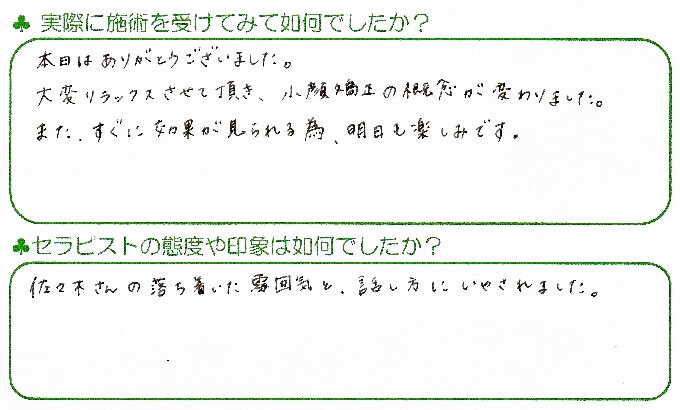 ♣ 実際に施術を受けてみて如何でしたか？
本日はありがとうございました。
大変リラックスさせて頂き、小顔矯正の概念が変わりました。
また、すぐに効果が見られる為、明日も楽しみです。
♣セラピストの態度や印象は如何でしたか？
佐々木さんの落ち着いた雰囲気と、話し方にいやされました。